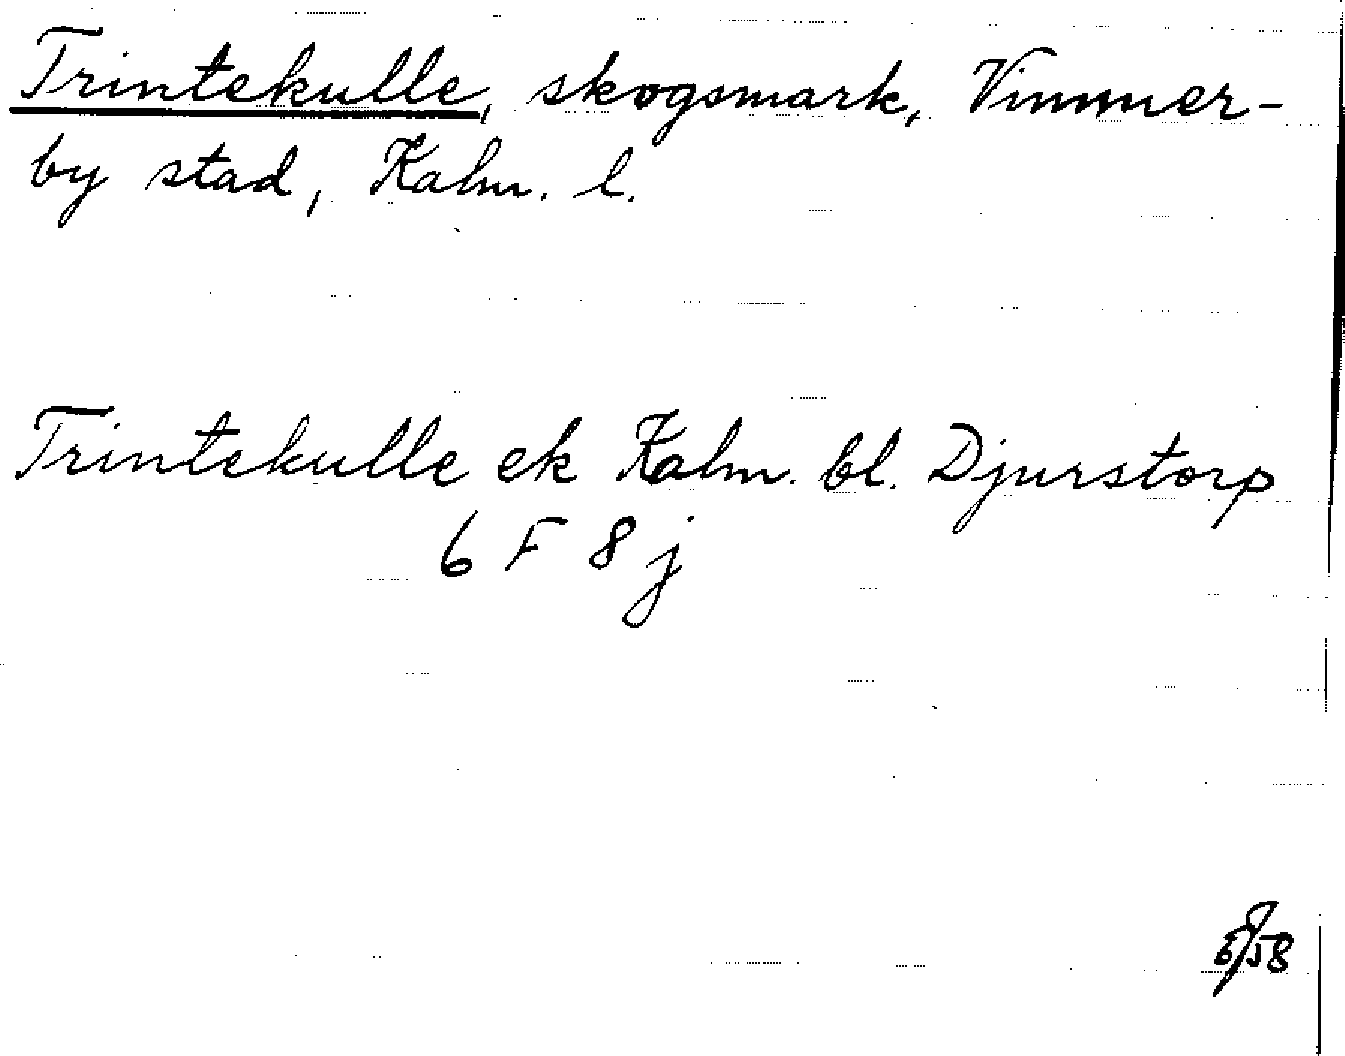 Trintekulle, skogsmark, Vimmer-
by stad, Kalm. l.
Trintekulle ek Kalm. bl. Djurstorp
6 F 8 j